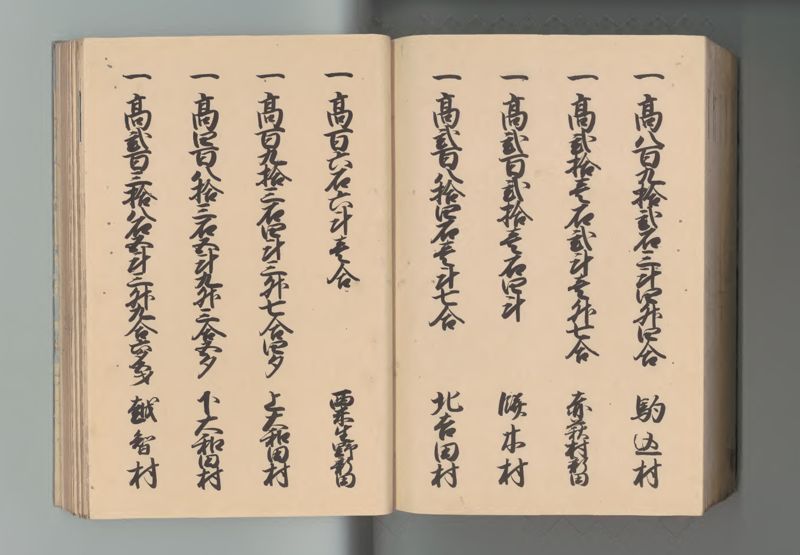 一 高八百九拾弐石三斗四升四合 駒込村
一 高弐拾壱石弐斗壱升七合 赤萩村新田
一 高弐百弐拾壱石四斗 桜木村
一 高弐百八拾四石壱斗七合 北吉田村
一 高百六石六斗壱合 粟生野新田
一 高百九拾三石四斗三升七合四夕 上大和田村
一 高四百八拾三石五斗九升三合五夕 下大和田村
一 高弐百三拾八石五斗三升九合六夕 越智村